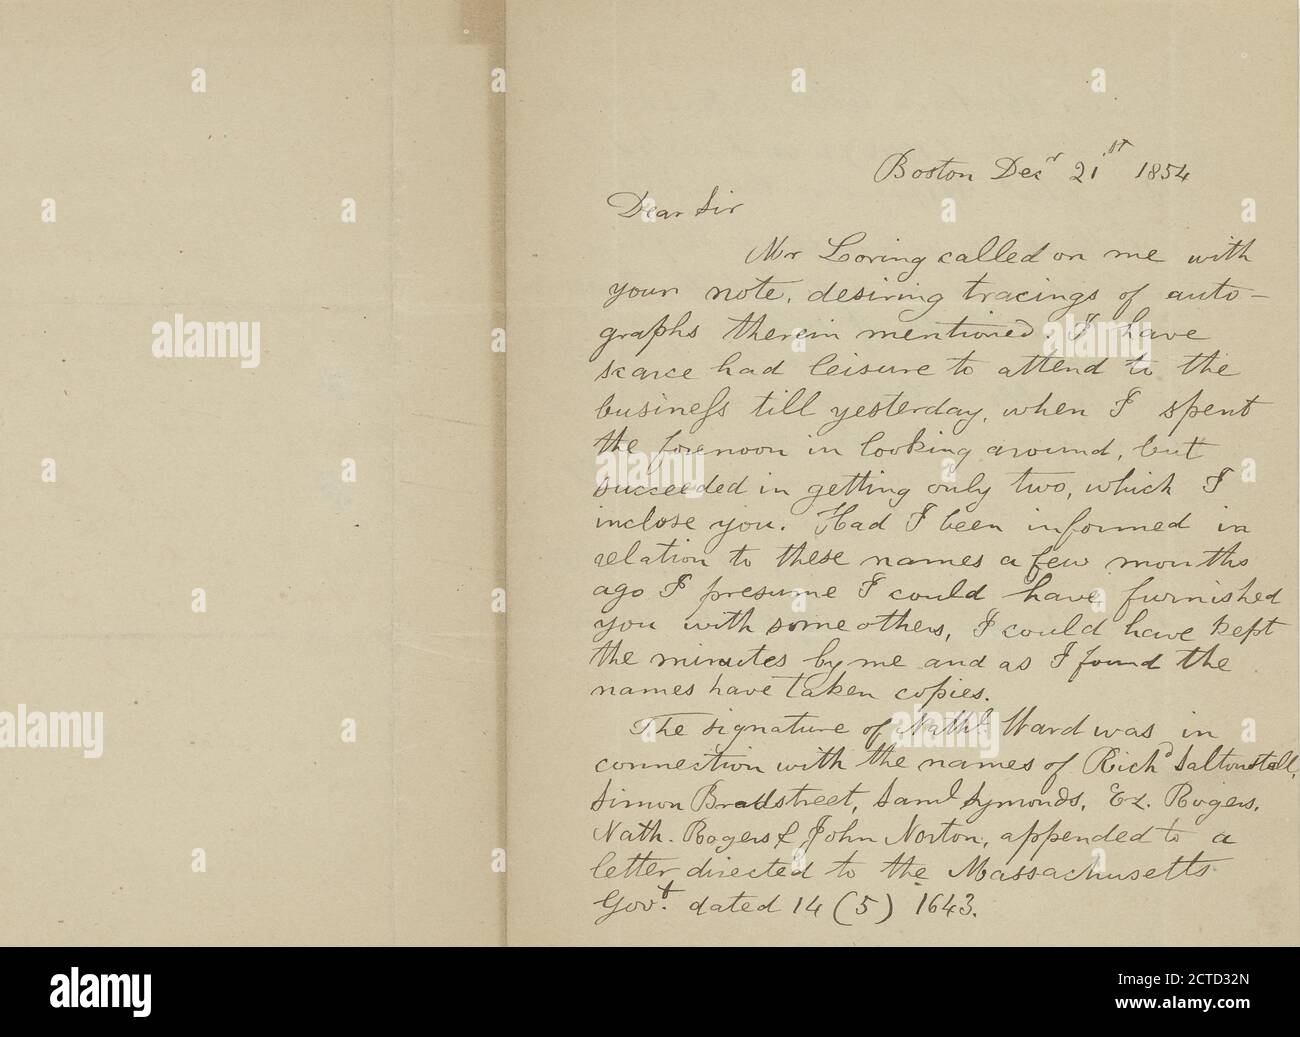 Boston Decr 21st 1854
Dear Sir
Mr Loring called on me with
your note, desiring tracings of auto-
graphs therein mentioned. I have
scarce had leisure to attend to the
business till yesterday, when I spent
the forenoon in looking around, but
succeeded in getting only two, which I
inclose you. Had I been informed in
relation to these names a few months
ago I presume I could have furnished
you with some others, I could have kept
the minutes by me and as I found the
names have taken copies.
The signature of Nathl. Ward was in
connection with the names of Richd Saltonstall,
Simon Bradstreet, Saml Symonds, Ez. Rogers,
Nath. Rogers & John Norton, appended to a
letter directed to the Massachusetts
Govt. dated 14 (5) 1643.
alamy
Image ID: 2CTD32N
www.alamy.com